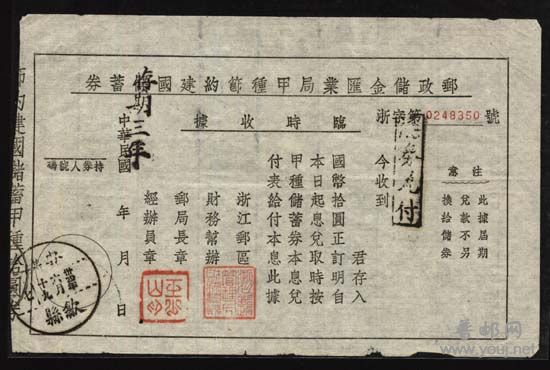 郵政儲金匯業局甲種節約建國儲蓄券
臨時收據
浙字第0248350號
注意
此據屆期
兌款不另
換給儲券
今收到
君存入
國幣拾圓正訂明自
本日起息兌取時按
甲種儲蓄券本息兌
付表給付本息此據
浙江郵區
財務幫辦
郵局長章
經辦員章
中華民國 年 月 日
持券人號碼
期三年
付
節約建國儲蓄甲種
歙縣
普邮网
www.youj.net